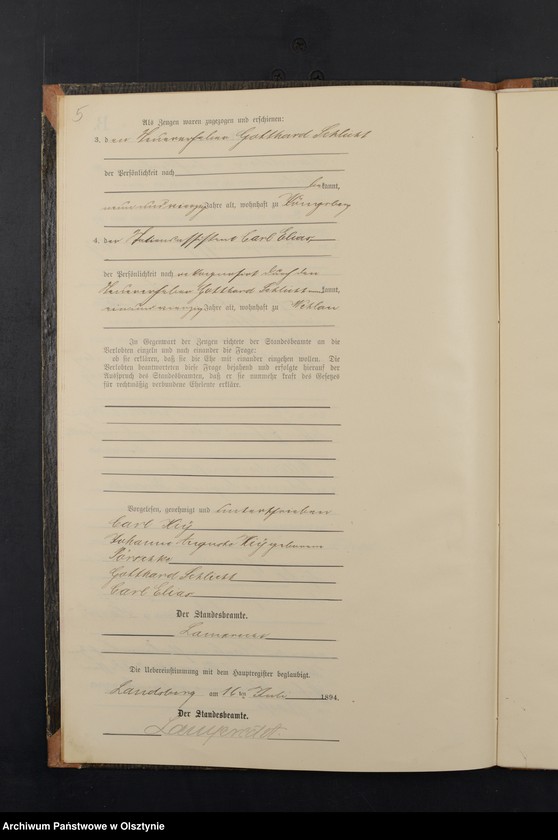 5
Als Zeugen waren zugezogen und erschienen:
3. der Gotthard Schlicht
der Persönlichkeit nach
bekannt,
Jahre alt, wohnhaft zu Königsberg
4. der Carl Elias
der Persönlichkeit nach durch den
Gotthard Schlicht kannt,
einundvierzig Jahre alt, wohnhaft zu
In Gegenwart der Zeugen richtete der Standesbeamte an die
Verlobten einzeln und nach einander die Frage:
ob sie erklären, daß sie die Ehe mit einander eingehen wollen. Die
Verlobten beantworteten diese Frage bejahend und erfolgte hierauf der
Ausspruch des Standesbeamten, daß er sie nunmehr kraft des Gesetzes
für rechtmäßig verbundene Eheleute erkläre.
Vorgelesen, genehmigt und unterschrieben
Carl Hey
Johanne Auguste Hey geborene
Gotthard Schlicht
Carl Elias
Der Standesbeamte.
Die Uebereinstimmung mit dem Hauptregister beglaubigt.
Landsberg am 16ten 1894.
Der Standesbeamte.
Archiwum Państwowe w Olsztynie